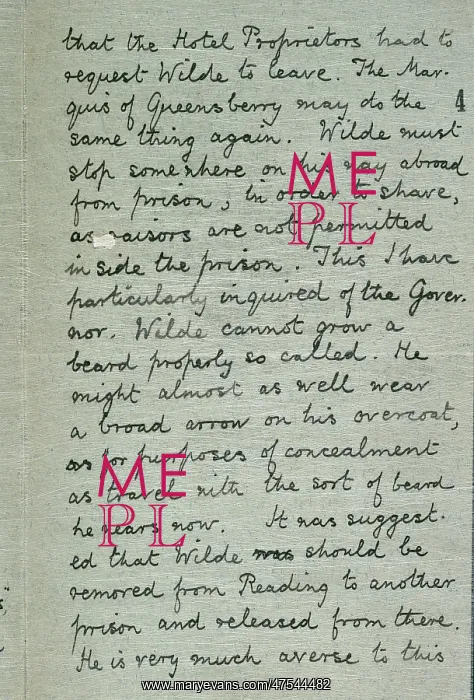 that the Hotel Proprietors had to
request Wilde to leave. The Mar-
quis of Queensberry may do the
4
same thing again. Wilde must
stop somewhere on his way abroad
from prison, in order to shave,
as raisors are not permitted
inside the prison. This I have
particularly inquired of the Gover-
nor. Wilde cannot grow a
beard properly so called. He
might almost as well wear
a broad arrow on his overcoat,
as for purposes of concealment
as travel with the sort of beard
he wears now. It was suggest-
ed that Wilde was should be
removed from Reading to another
prison and released from there.
He is very much averse to this
ME
PL
ME
PL
www.maryevans.com/47544482